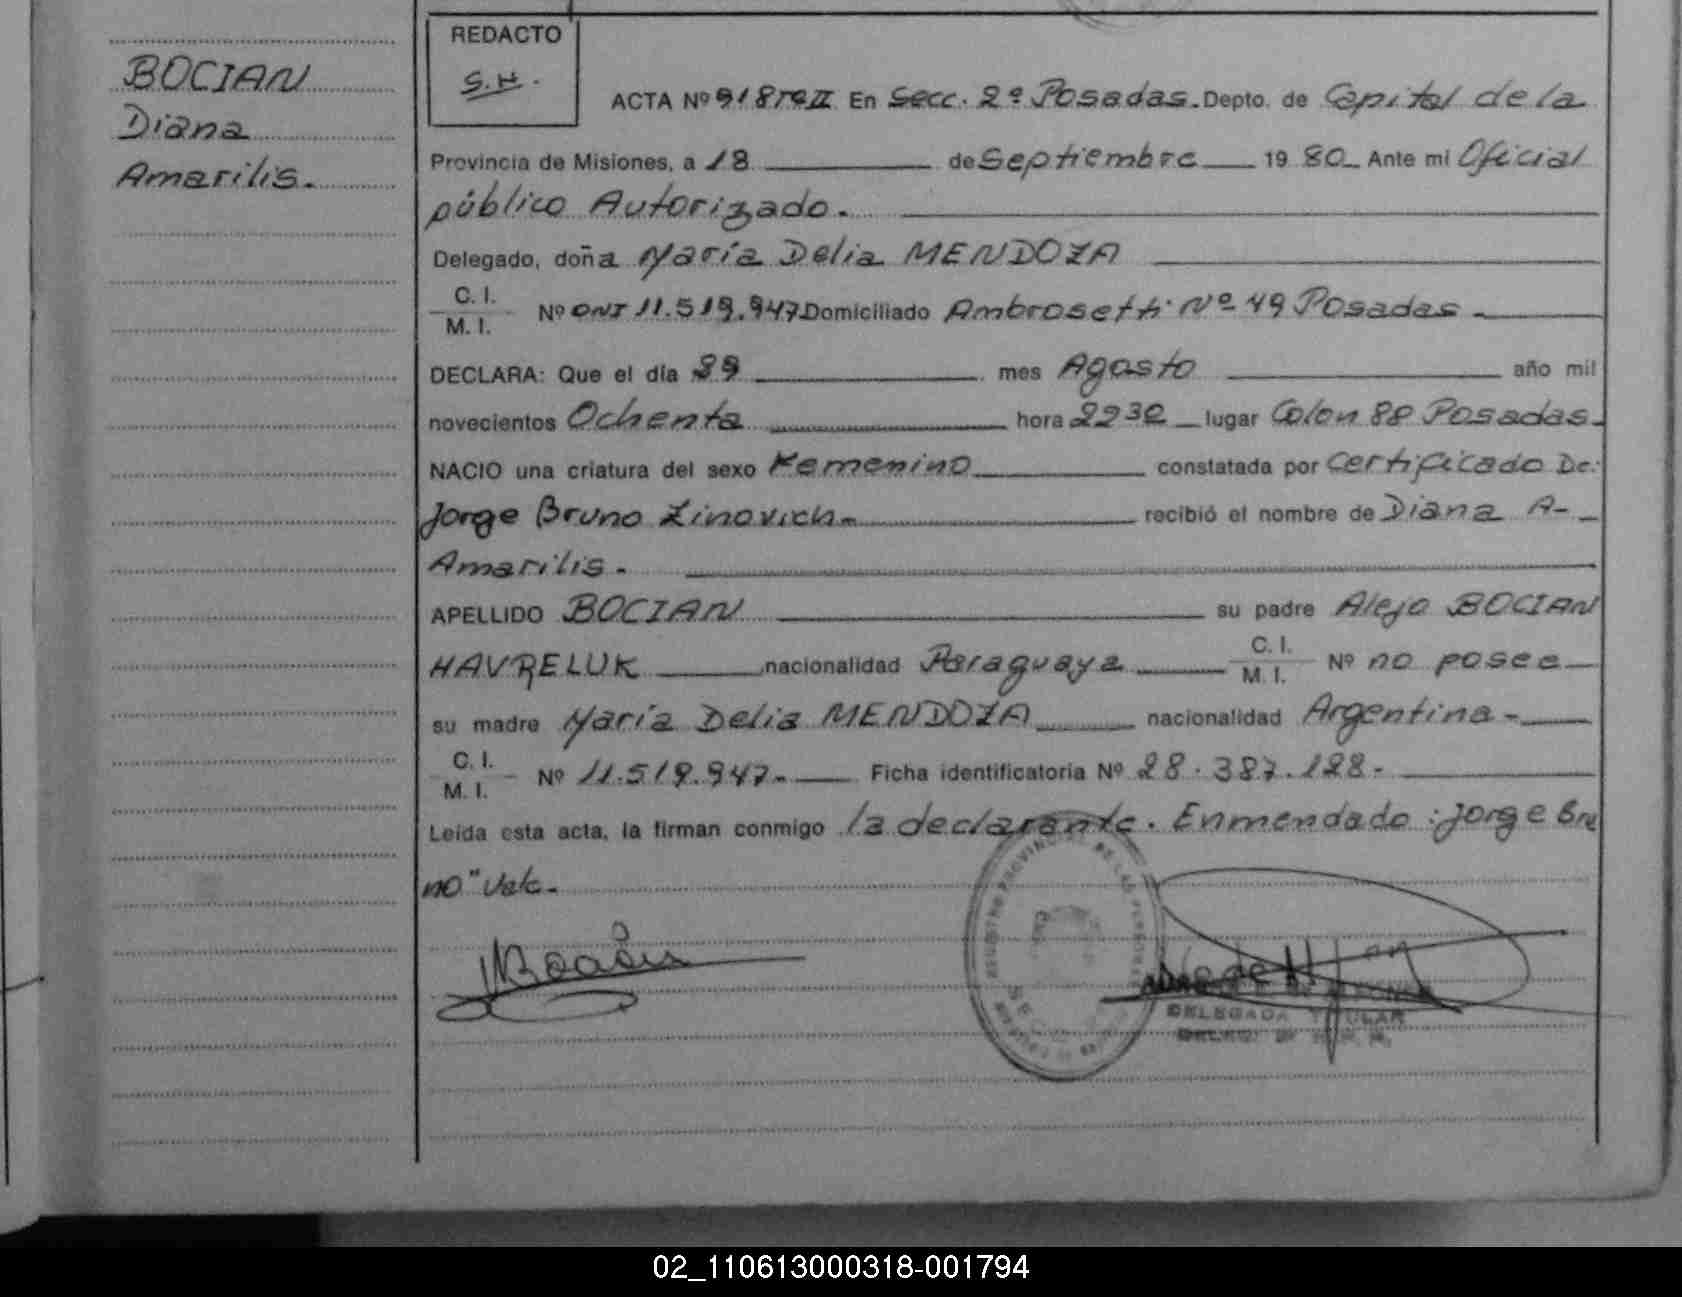 BOCIAN
Diana
Amarilis.
REDACTO
S.H.
ACTA Nº 918 Tº II En Secc. 2º Posadas. Depto. de Capital de la
Provincia de Misiones, a 18 de Septiembre 19 80 Ante mi Oficial
público Autorizado.
Delegado, doña María Delia MENDOZA
C. I.
M. I. Nº DNI 11.519.947 Domiciliado Ambrosetti Nº 49 Posadas
DECLARA: Que el día 29 mes Agosto año mil
novecientos Ochenta hora 2230 lugar Colon 88 Posadas
NACIO una criatura del sexo Femenino constatada por Certificado De:
Jorge Bruno Zinovich recibió el nombre de Diana A-
Amarilis.
APELLIDO BOCIAN su padre Alejo BOCIAN
HAVRELUK nacionalidad Paraguaya C. I.
M. I. Nº no posee
su madre María Delia MENDOZA nacionalidad Argentina
C. I.
M. I. Nº 11.519.947 Ficha identificatoria Nº 28.387.128
Leída esta acta, la firman conmigo la declarante. Enmendado: Jorge Bru
no" Vale.
REGISTRO PROVINCIAL DE LAS PERSONAS
DELEGADA TITULAR
02_110613000318-001794